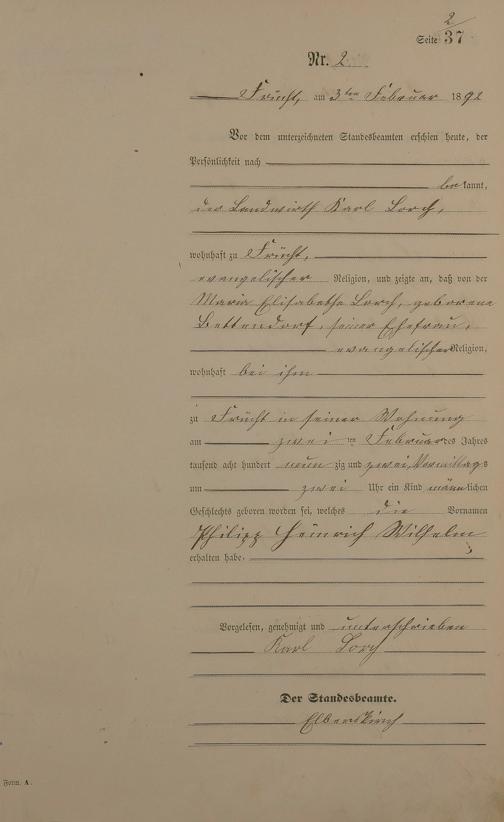 2
Seite 37
Nr. 2
Frücht, am 3ten Februar 1892
Vor dem unterzeichneten Standesbeamten erschien heute, der
Persönlichkeit nach
bekannt,
der Landwirth Karl Lorch,
wohnhaft zu Frücht,
evangelischer Religion, und zeigte an, daß von der
Maria Elisabetha Lorch, geborene
Bettendorf, seiner Ehefrau,
evangelischer Religion,
wohnhaft bei ihm
zu Frücht in seiner Wohnung
am zwei ten Februar des Jahres
tausend acht hundert neun zig und zwei, Vormittags
um zwei Uhr ein Kind männlichen
Geschlechts geboren worden sei, welches die Vornamen
Philipp Heinrich Wilhelm
erhalten habe.
Vorgelesen, genehmigt und unterschrieben
Karl Lorch
Der Standesbeamte.
Elberskirch
Form. A.